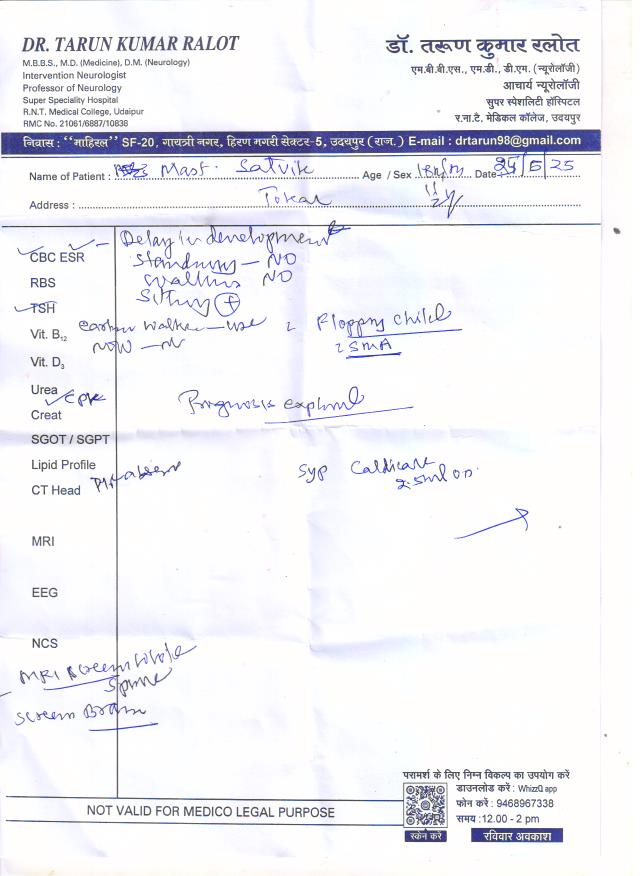 DR. TARUN KUMAR RALOT
M.B.B.S., M.D. (Medicine), D.M. (Neurology)
Intervention Neurologist
Professor of Neurology
Super Speciality Hospital
R.N.T. Medical College, Udaipur
RMC No. 21061/6887/10838
डॉ. तरूण कुमार रलोत
एम.बी.बी.एस., एम.डी., डी.एम. (न्यूरोलॉजी)
आचार्य न्यूरोलॉजी
सुपर स्पेशलिटी हॉस्पिटल
र.ना.टै. मेडिकल कॉलेज, उदयपुर
निवास : "माहिरल" SF-20, गायत्री नगर, हिरण मगरी सेक्टर-5, उदयपुर (राज.) E-mail : drtarun98@gmail.com
Name of Patient : Mast. Satvik Age / Sex 18m/M Date 24/5/25
Address : Tokar
Delay in development
CBC ESR
Standing - NO
RBS
Walking NO
Sitting +
TSH
Vit. B12
Floppy child
Vit. D3
? SMA
Urea
CPK
Prognosis explained
Creat
SGOT / SGPT
Lipid Profile
Syp
2.5ml OD.
CT Head
MRI
EEG
NCS
MRI Screen Whole
Spine
Screen Brain
परामर्श के लिए निम्न विकल्प का उपयोग करें
डाउनलोड करें : WhizzQ app
फोन करें : 9468967338
समय :12.00 - 2 pm
स्कैन करें
रविवार अवकाश
NOT VALID FOR MEDICO LEGAL PURPOSE